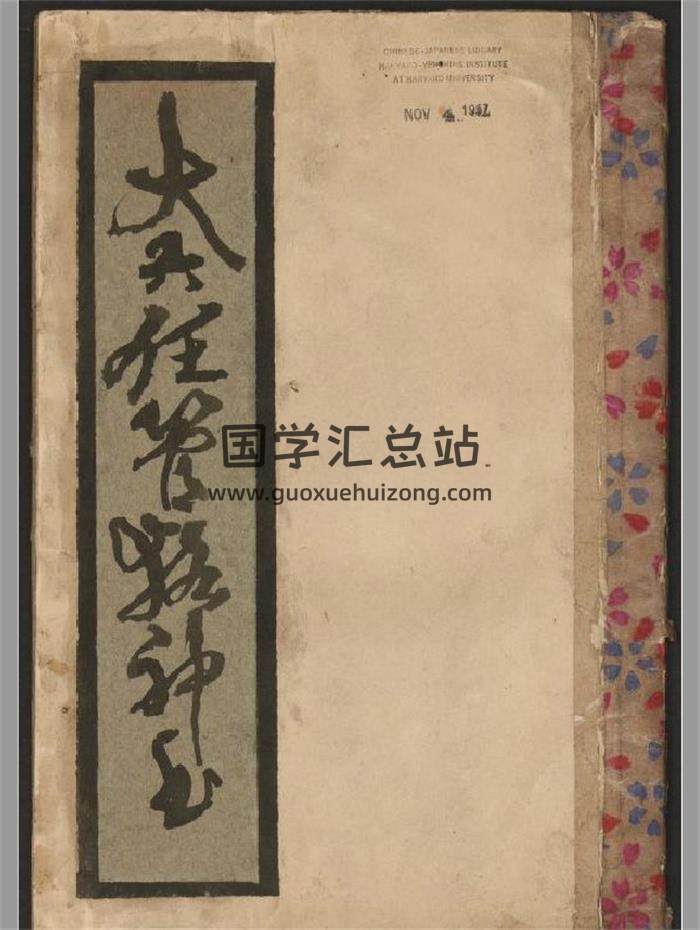 CHINESE-JAPANESE LIBRARY
HARVARD-YENCHING INSTITUTE
AT HARVARD UNIVERSITY
NOV
大六任管輅神書
国学汇总站
www.guoxuehuizong.com